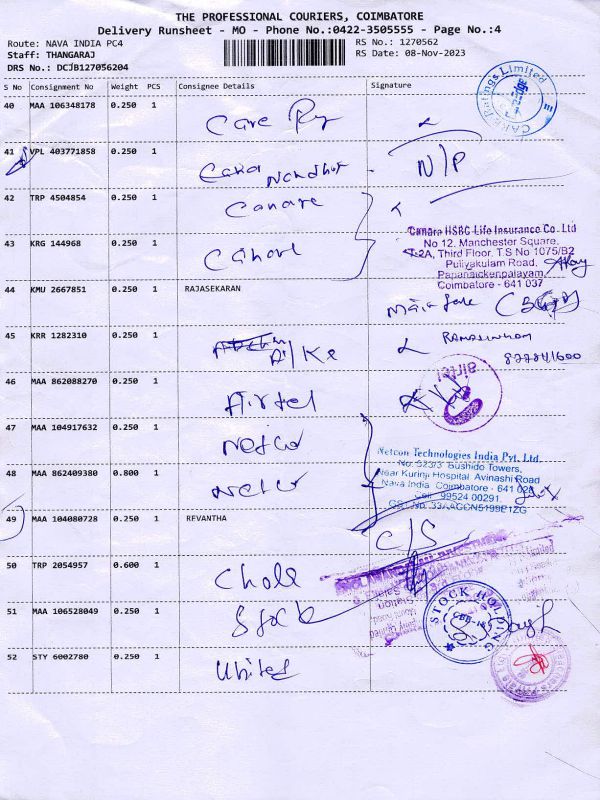 THE PROFESSIONAL COURIERS, COIMBATORE
Delivery Runsheet - MO - Phone No.:0422-3505555 - Page No.:4
Route: NAVA INDIA PC4
RS No.: 1270562
Staff: THANGARAJ
RS Date: 08-Nov-2023
DRS No.: DCJB127056204
S No Consignment No Weight PCS Consignee Details Signature
40 MAA 106348178 0.250 1 Care
CARE Ratings Limited
41 VPL 403771858 0.250 1 N/P
42 TRP 4504854 0.250 1 Canare
43 KRG 144968 0.250 1
Canara HSBC Life Insurance Co. Ltd
No 12, Manchester Square,
T-2A, Third Floor, T.S No 1075/B2
Puliyakulam Road,
Papanaickenpalayam,
Coimbatore - 641 037
44 KMU 2667851 0.250 1 RAJASEKARAN
45 KRR 1282310 0.250 1
46 MAA 862088270 0.250 1 Airtel
airtel
47 MAA 104917632 0.250 1
Netcon Technologies India Pvt. Ltd.
No. 323/3 Bushido Towers,
Near Kurinji Hospital Avinashi Road
Nava India, Coimbatore - 641 028
Cell : 99524 00291.
48 MAA 862409380 0.800 1
49 MAA 104080728 0.250 1 REVANTHA C/S
50 TRP 2054957 0.600 1 Chola
51 MAA 106528049 0.250 1 Stock
STOCK HOLDING
52 STY 6002780 0.250 1 United